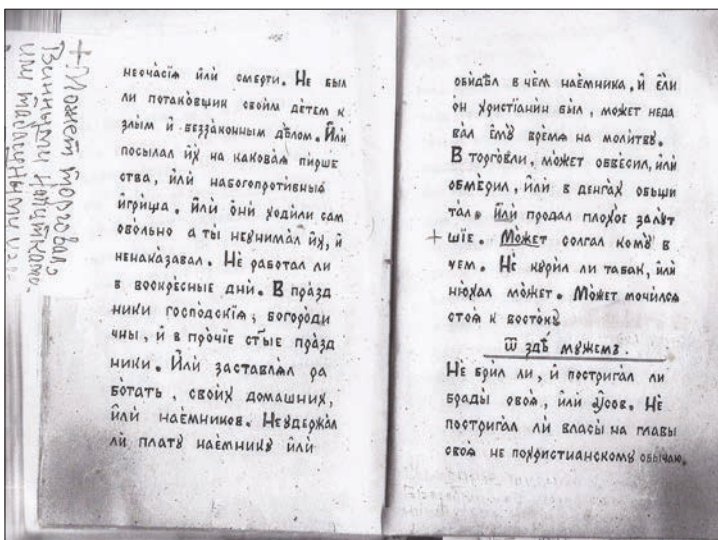 + Может торговал
Винными напитками
или табачными
несча́сїѧ и҆лѝ сме́рти. Не был
ли потако́вщик свои́м де́тем к
злы́м и҆ беззако́нным дѣло́м. И҆лѝ
посыла́л и҆́х на какова́ѧ пирше
ства, и҆лѝ набогопроти́вныѧ
и҆гри́ща. И҆лѝ ѻ҆нѝ ходи́ли сам
ово́льно а ты̀ неунима́л и҆́х, и҆
ненака́зывал. Нѐ рабо́тал ли
в воскре́сные днѝ. В пра́зд
ники госпо́дскїѧ, богоро́ди
чны, и҆ в про́чїе ст҃ы́е пра́зд
ники. И҆лѝ заставлѧ́л ра
бо́тать, свои́х дома́шних,
и҆лѝ нае́мников. Не удержа́л
лѝ пла́тꙋ нае́мникꙋ и҆лѝ
оби́дѣл в че́м нае́мника, и҆ е҆́ли
о҆́н христїани́н бы́л, мо́жет неда
ва́л е҆мꙋ̀ вре́мѧ на моли́твꙋ.
В торго́вли, мо́жет обве́сил, и҆лѝ
обме́рил, и҆лѝ в де́нгах обыщи
та́л. И҆лѝ про́дал плохо́е за лꙋ́т
+ шїе. Мо́жет солга́л комꙋ̀ в
чем. Нѐ кури́л ли таба́к, и҆лѝ
ню́хал мо́жет. Мо́жет мочи́лсѧ
стоѧ̀ к восто́кꙋ
ѿ здѣ̀ мꙋже́мъ.
Нѐ бри́л ли, и҆ пострига́л ли
брады̀ своѧ̀, и҆лѝ ᲂу҆со́в. Нѐ
пострига́л лѝ власы̀ на главы̀
своѧ̀ не похристианскомꙋ обы́чаю.